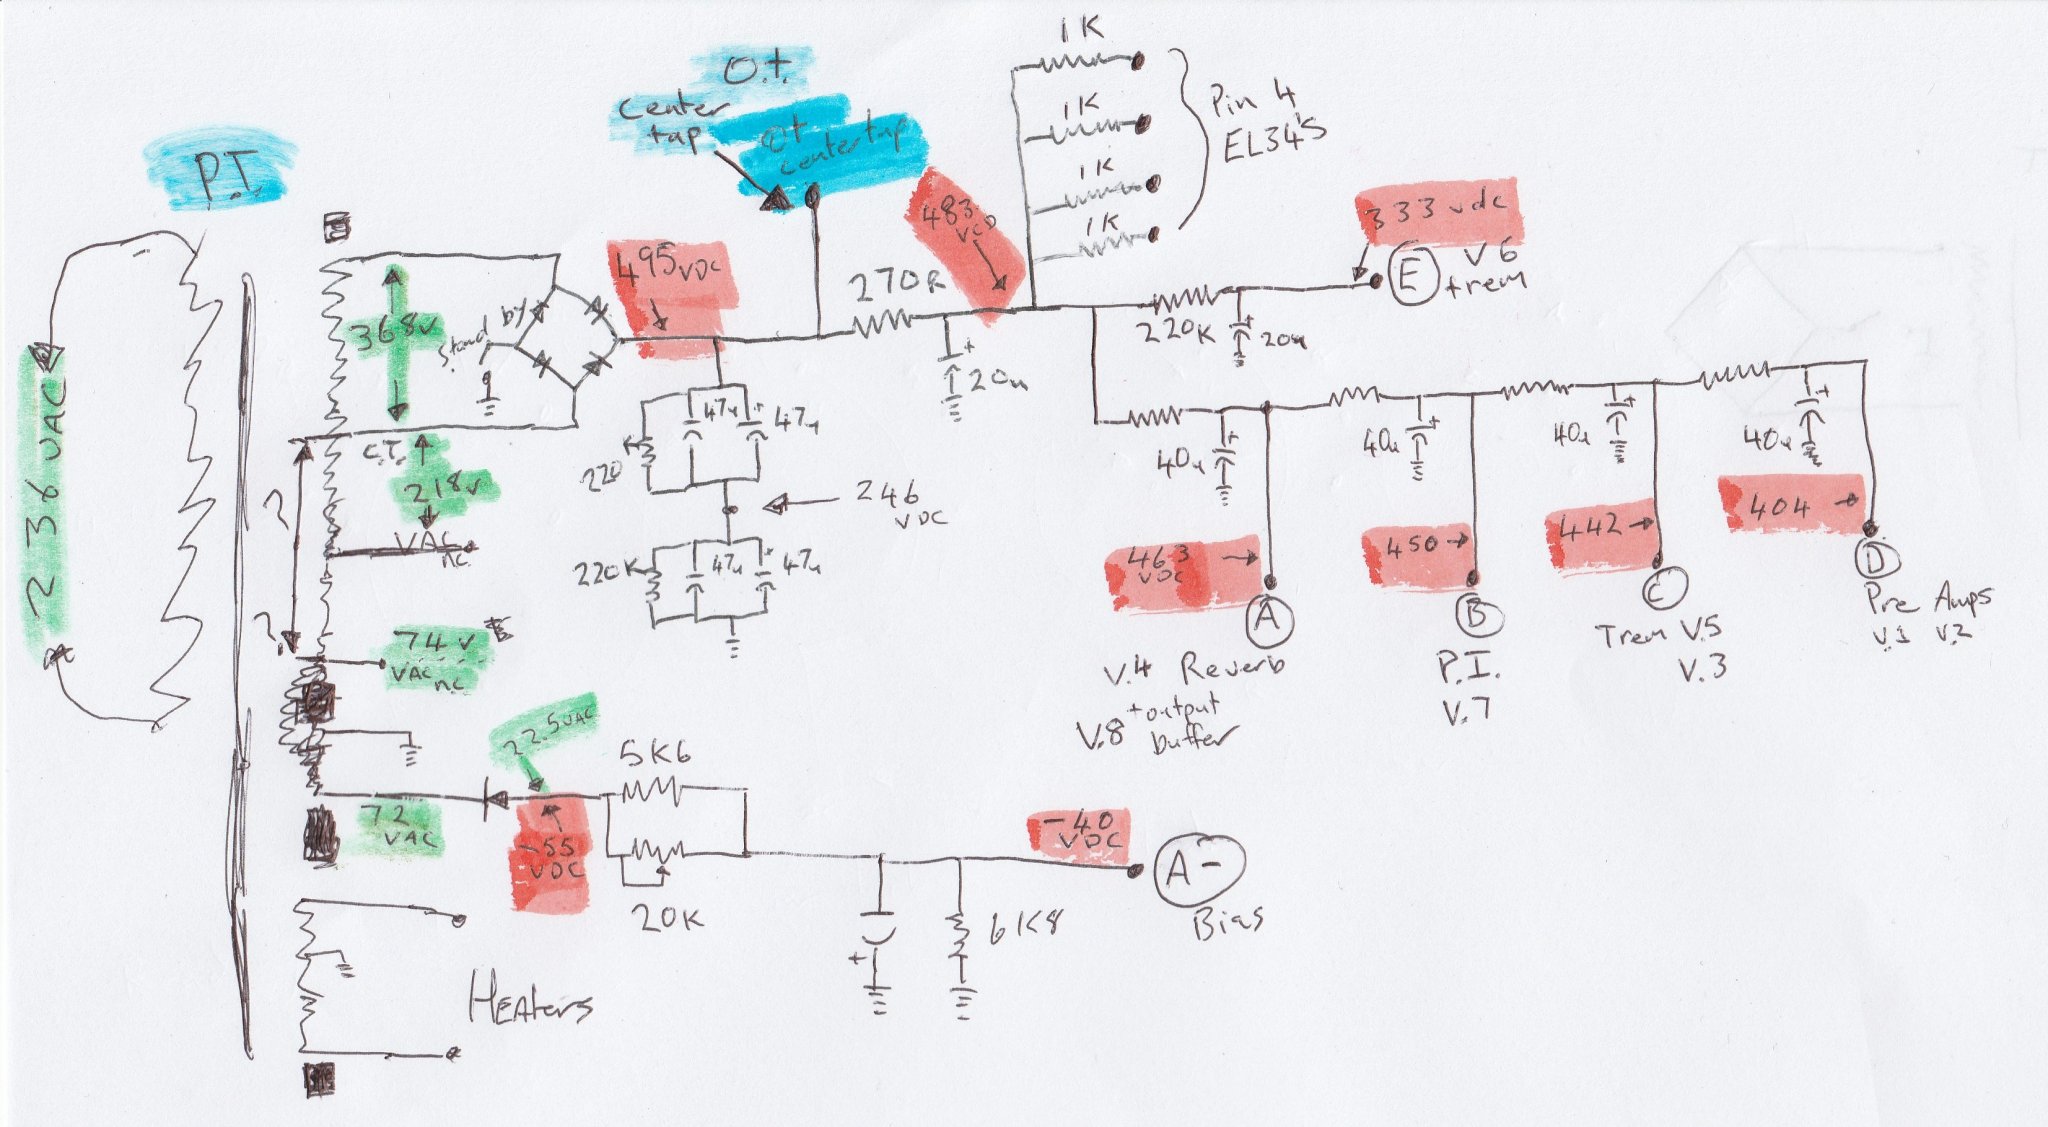 P.T
236 VAC
368v
C.T.
218v
VAC
nc.
?
?
74v
VAC
nc
72
VAC
22.5VAC
-55
VDC
5K6
20K
6K8
+
-40
VDC
A-
Bias
Heaters
Stand by
495 VDC
O.t.
center
tap
ot
center tap
270R
483
VCD
+
20u
47u
+
47u
220
246
VDC
220K
47u
+
47u
1K
1K
1K
1K
Pin 4
EL34's
333 vdc
E
V6
trem
220K
+
20u
+
40u
+
40u
+
40u
+
40u
463
VDC
450
442
404
A
B
C
D
V.4 Reverb
V.8 + output
buffer
P.I.
V.7
Trem V.5
V.3
Pre Amps
V.1 V.2